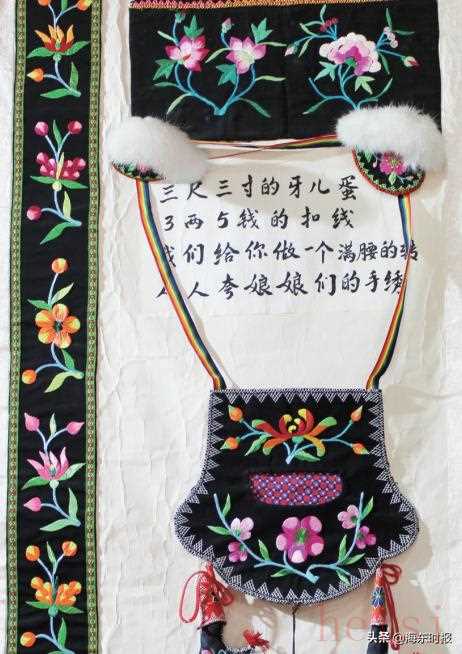 三尺三寸的牙儿蛋
3两5钱的扣线
我们给你做一个满腰的转
人人夸娘娘们的手绣
hehsi
头条@海东时报